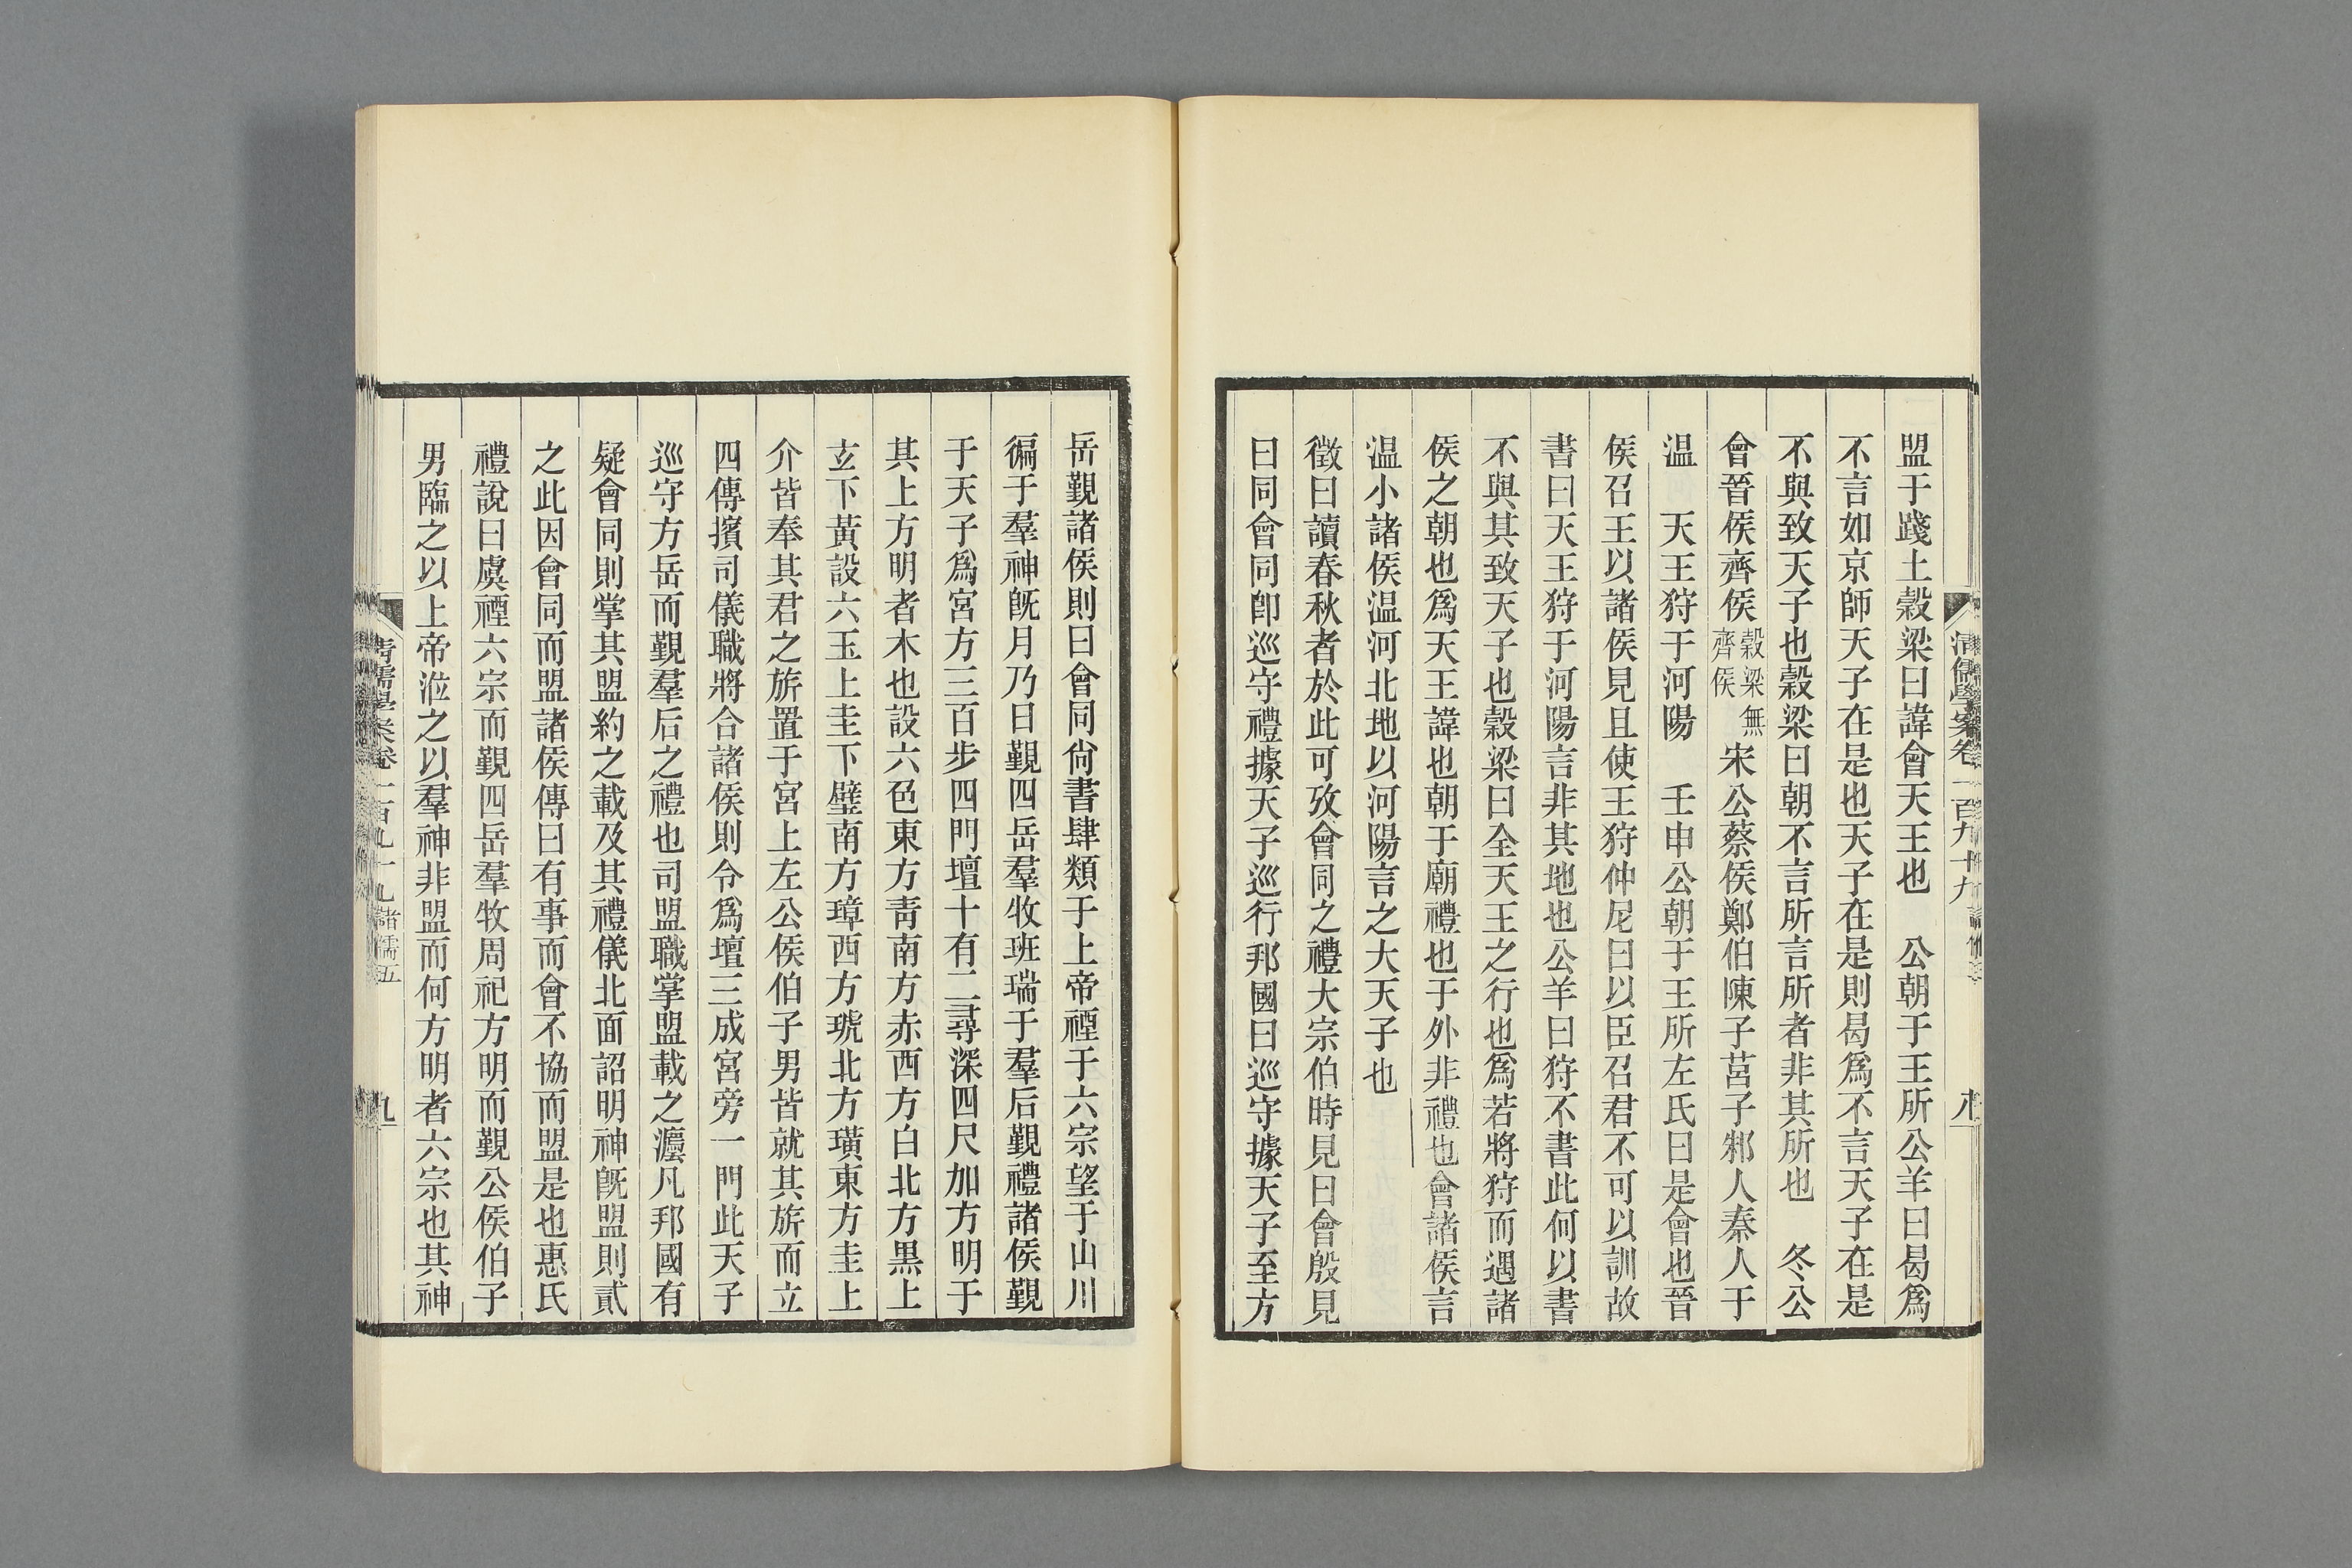 盟于踐土穀梁曰諱會天王也　公朝于王所公羊曰曷爲
不言如京師天子在是也天子在是則曷爲不言天子在是
不與致天子也穀梁曰朝不言所言所者非其所也　冬公
會晉侯齊侯穀梁無齊侯宋公蔡侯鄭伯陳子莒子邾人秦人于
温　天王狩于河陽　壬申公朝于王所左氏曰是會也晉
侯召王以諸侯見且使王狩仲尼曰以臣召君不可以訓故
書曰天王狩于河陽言非其地也公羊曰狩不書此何以書
不與其致天子也穀梁曰全天王之行也爲若將狩而遇諸
侯之朝也爲天王諱也朝于廟禮也于外非禮也會諸侯言
温小諸侯温河北地以河陽言之大天子也
徵曰讀春秋者於此可攷會同之禮大宗伯時見曰會殷見
曰同會同卽巡守禮據天子巡行邦國曰巡守據天子至方
清儒學案卷一百九十九
岳覲諸侯則曰會同尙書肆類于上帝禋于六宗望于山川
徧于羣神旣月乃日覲四岳羣牧班瑞于羣后覲禮諸侯覲
于天子爲宮方三百步四門壇十有二尋深四尺加方明于
其上方明者木也設六色東方靑南方赤西方白北方黑上
玄下黃設六玉上圭下璧南方璋西方琥北方璜東方圭上
介皆奉其君之旂置于宮上左公侯伯子男皆就其旂而立
四傳擯司儀職將合諸侯則令爲壇三成宮旁一門此天子
巡守方岳而覲羣后之禮也司盟職掌盟載之灋凡邦國有
疑會同則掌其盟約之載及其禮儀北面詔明神旣盟則貳
之此因會同而盟諸侯傳曰有事而會不協而盟是也惠氏
禮說曰虞禋六宗而覲四岳羣牧周祀方明而覲公侯伯子
男臨之以上帝涖之以羣神非盟而何方明者六宗也其神
清儒學案卷一百九十九　諸儒五　九